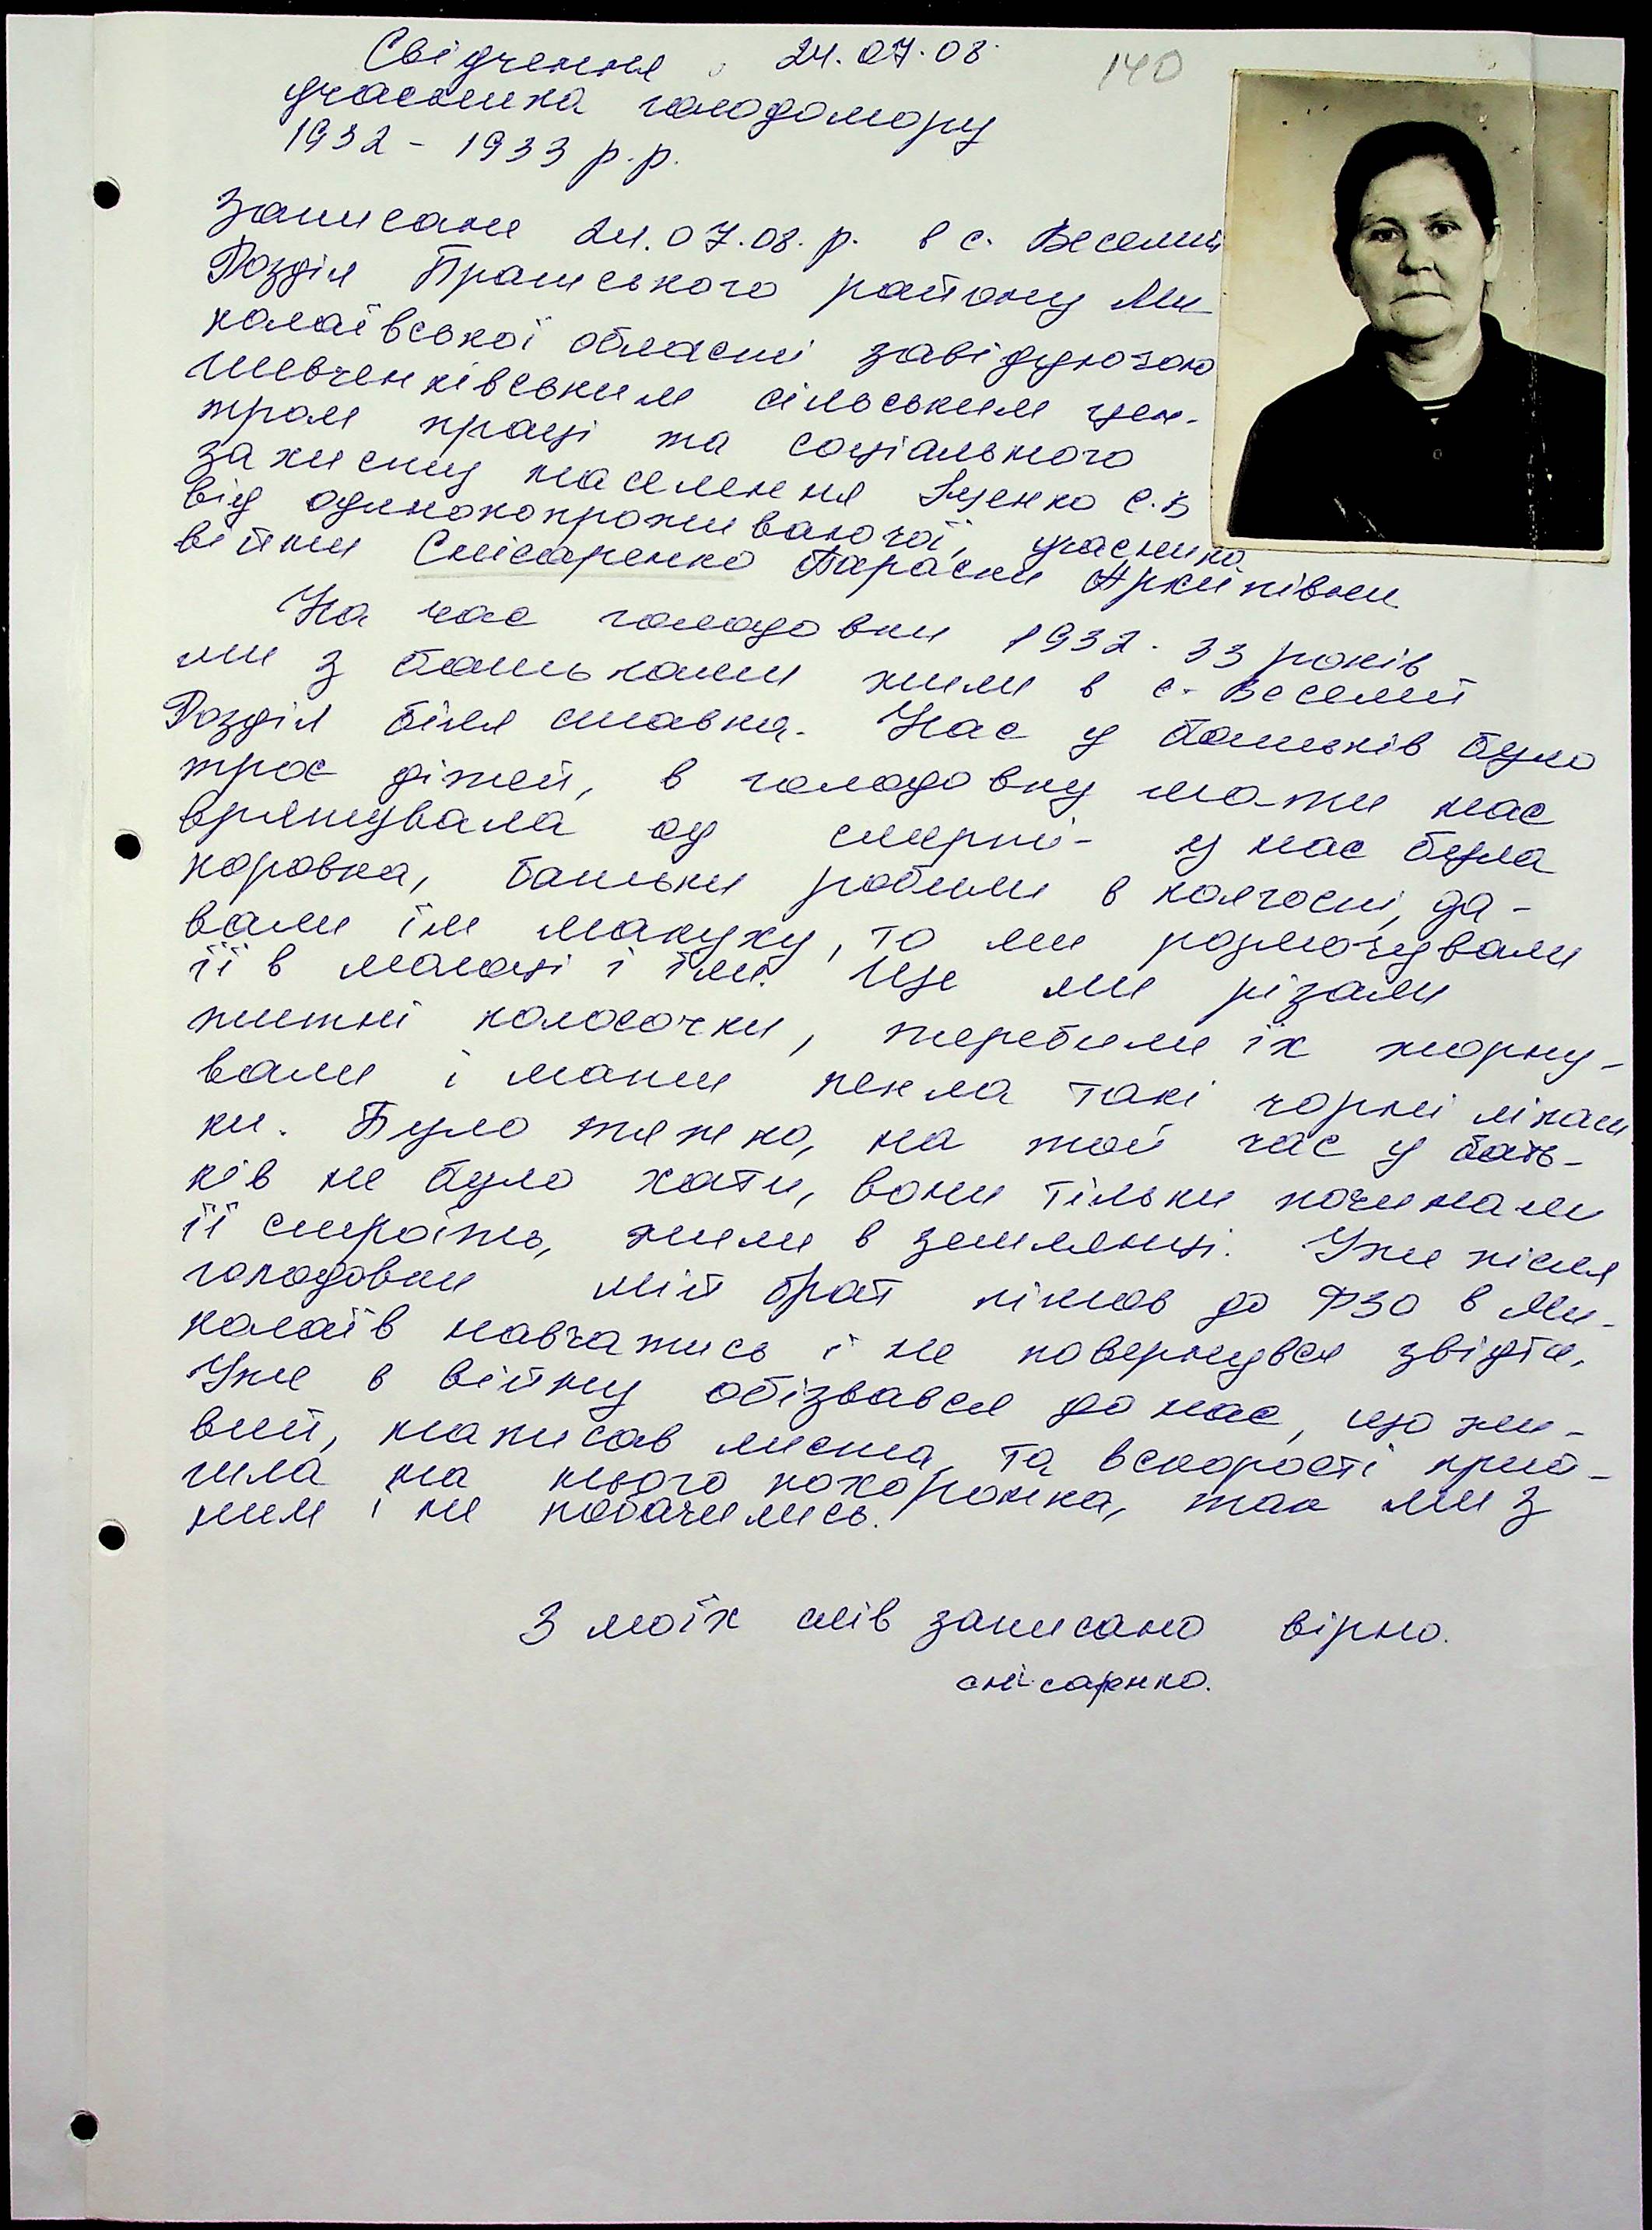 Свідчення 24.07.08.
140
учасника голодомору
1932 - 1933 р.р.
Записане 24.07.08. р. в с. Веселий
Розділ Братського району Ми
колаївської області завідуючою
Шевченківським сільським цен-
тром праці та соціального
захисту населення Іценко С.В
від одинокопроживаючої, учасника
війни Снісаренко Параски Архипівни
На час голодовки 1932-33 років
ми з батьками жили в с. Веселий
Розділ біля ставка. Нас у батьків було
троє дітей, в голодовку мати нас
врятувала од смерті- у нас була
коровка, батьки робили в колгоспі, да-
вали їм макуху, то ми розмочували
її в молоці і їли. Ще ми різали
житні колосочки, теребили їх жорну-
вали і мати пекла такі чорні ліпаш
ки. Було тяжко, на той час у бать-
ків не було хати, вони тільки починали
її строїть, жили в землянці. Уже після
голодовки мій брат пішов до ФЗО в Ми-
колаїв навчатись і не повернувся звідти.
Уже в війну обізвався до нас, що жи-
вий, написав листа, та вскорості прий-
шла на нього похоронка, так ми з
ним і не побачились.
З моїх слів записано вірно.
снісарнко.